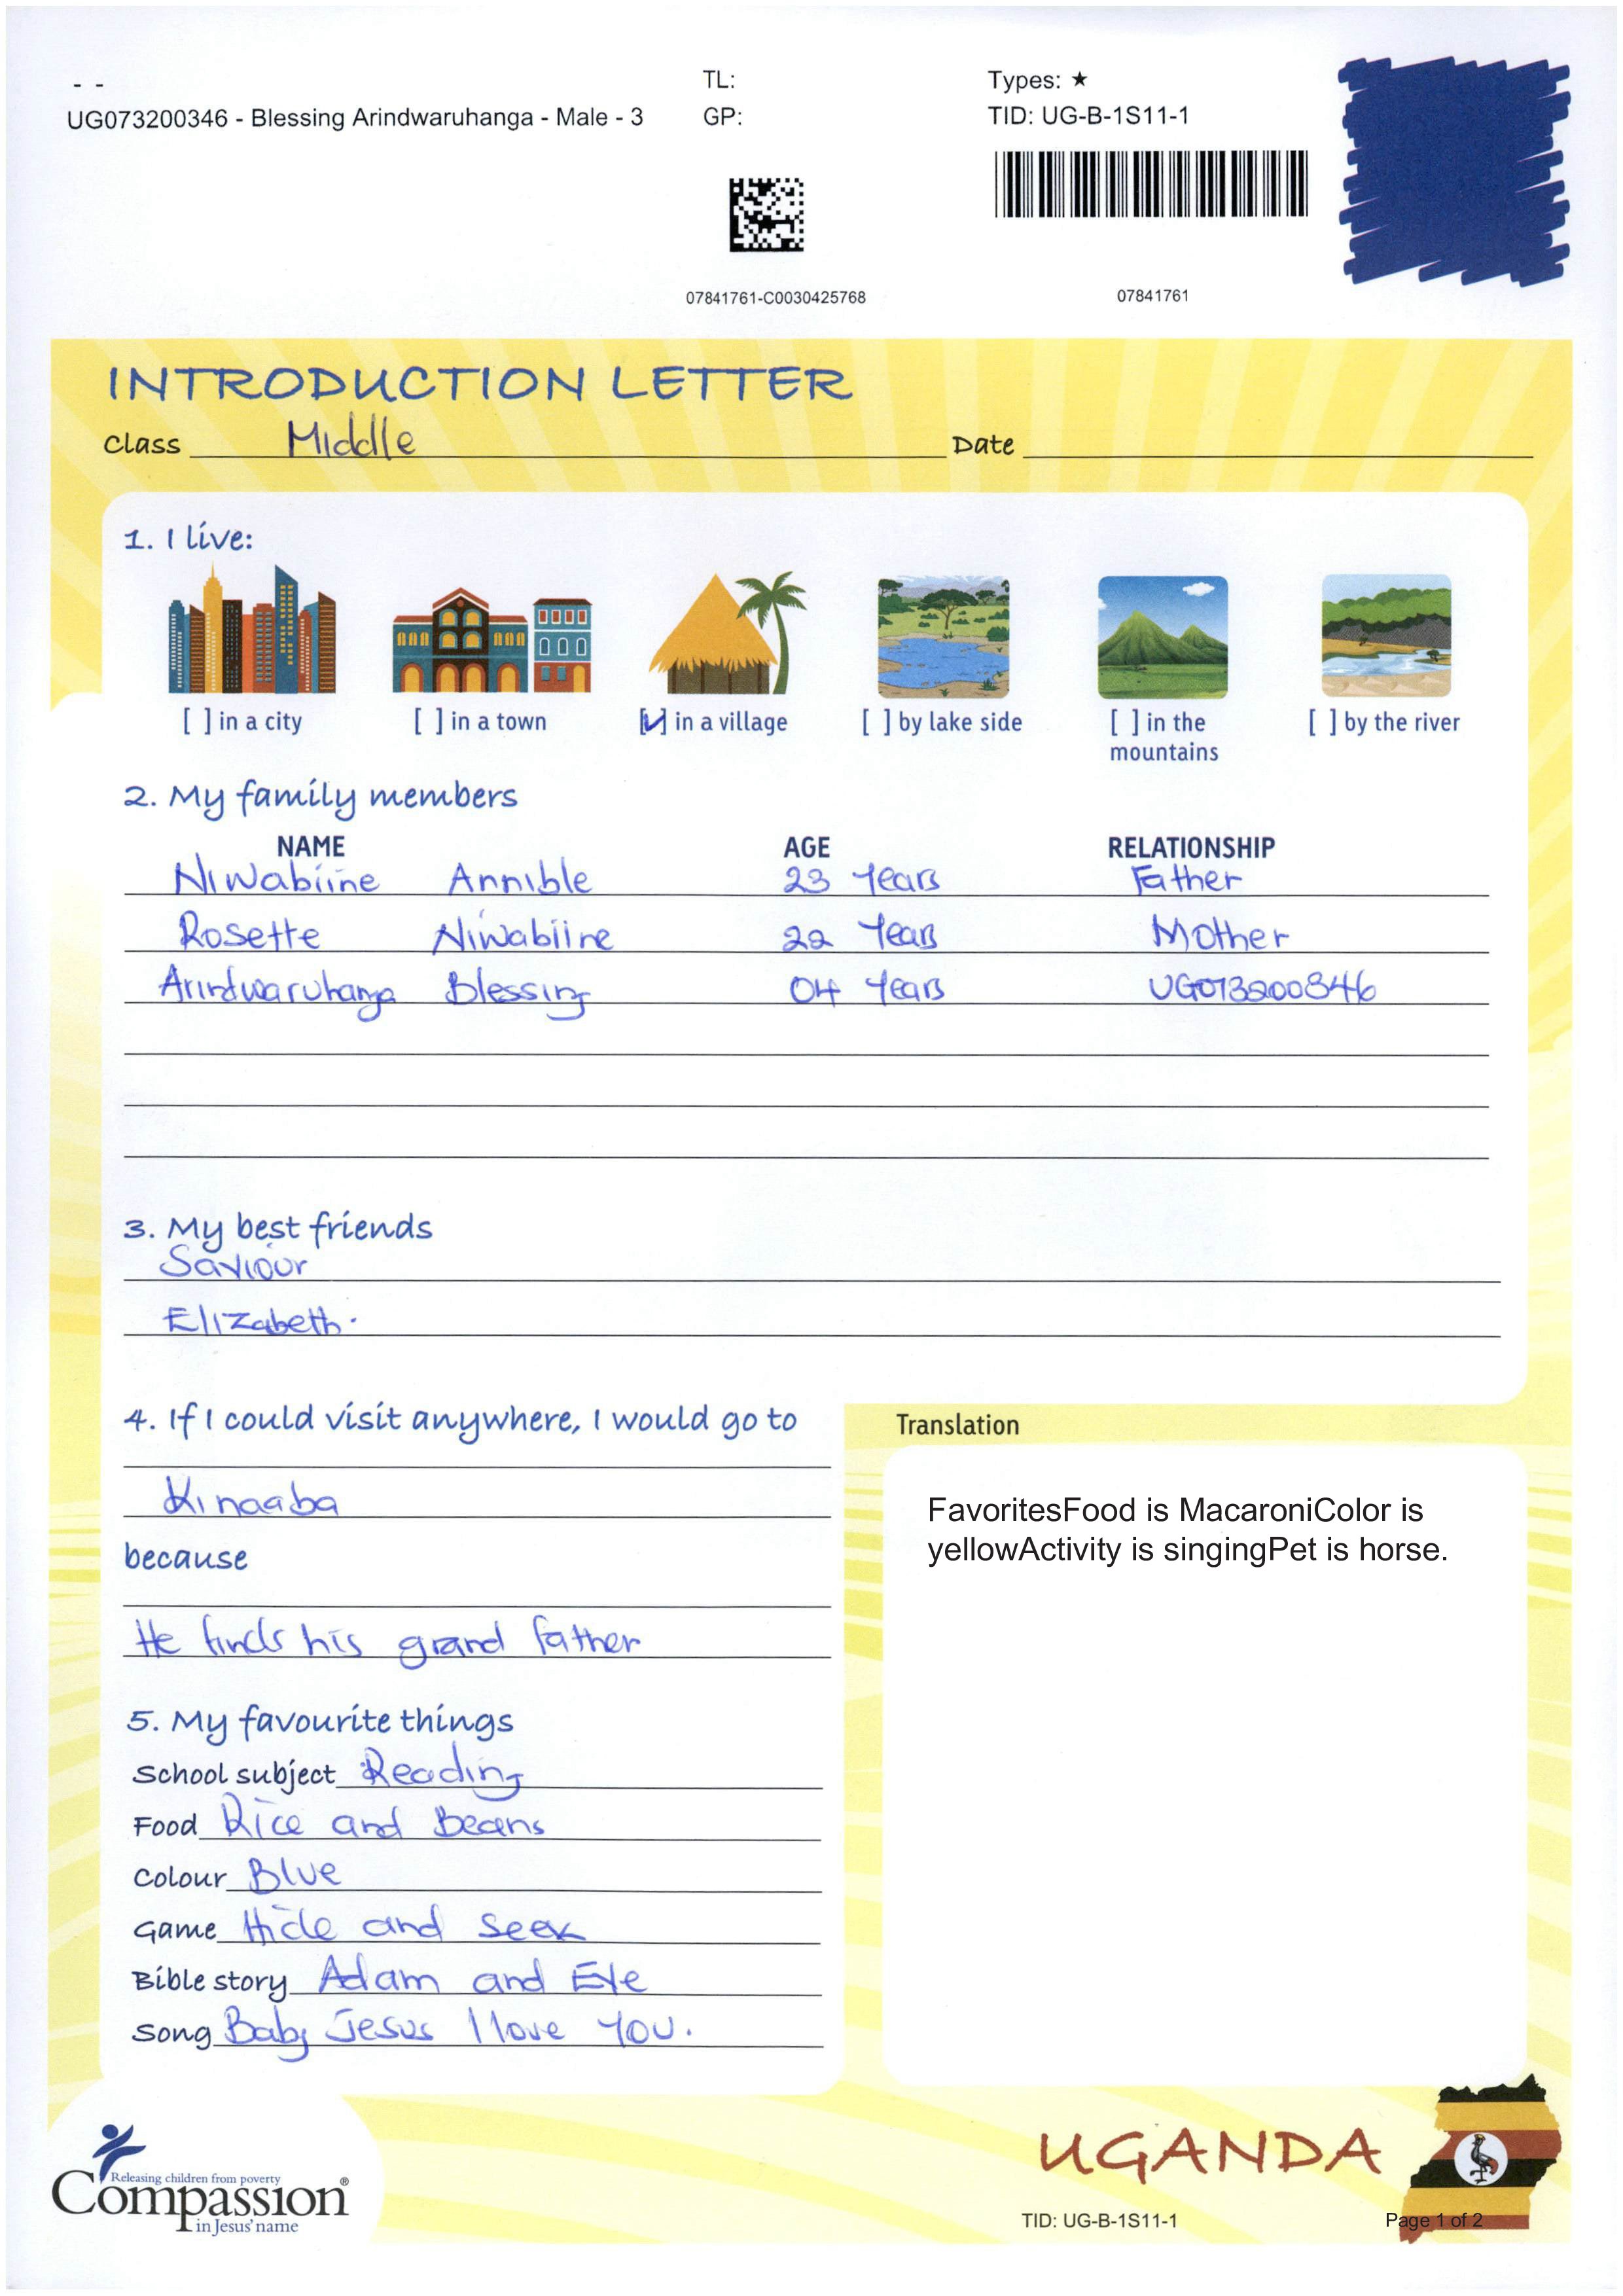 - -
UG073200346 - Blessing Arindwaruhanga - Male - 3
TL:
GP:
Types: ★
TID: UG-B-1S11-1
07841761-C0030425768
07841761
INTRODUCTION LETTER
Class Middle Date
1. I live:
[ ] in a city [ ] in a town [✓] in a village [ ] by lake side [ ] in the mountains [ ] by the river
2. My family members
NAME AGE RELATIONSHIP
Niwabiine Annible 23 Years Father
Rosette Niwabiine 22 Years Mother
Arindwaruhanga Blessing 04 Years UG073200346
3. My best friends
Saviour
Elizabeth.
4. If I could visit anywhere, I would go to
Kinaaba
because
He finds his grand father
5. My favourite things
School subject Reading
Food Rice and Beans
Colour Blue
Game Hide and seek
Bible story Adam and Eve
Song Baby Jesus I love you.
Translation
FavoritesFood is MacaroniColor is
yellowActivity is singingPet is horse.
Releasing children from poverty
Compassion®
in Jesus' name
UGANDA
TID: UG-B-1S11-1
Page 1 of 2